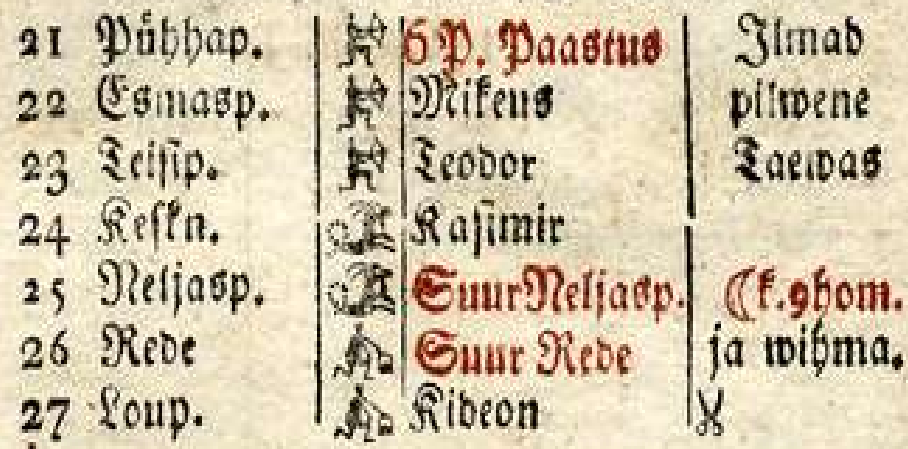 21 Pühhap. 6 P. Paastus Ilmad
22 Esmasp. Mikeus pilwene
23 Teisip. Teodor Taewas
24 Keskn. Kasimir
25 Neljasp. Suur Neljasp. ☾ k. 9 hom.
26 Rede Suur Rede ja wihma.
27 Loup. Kideon